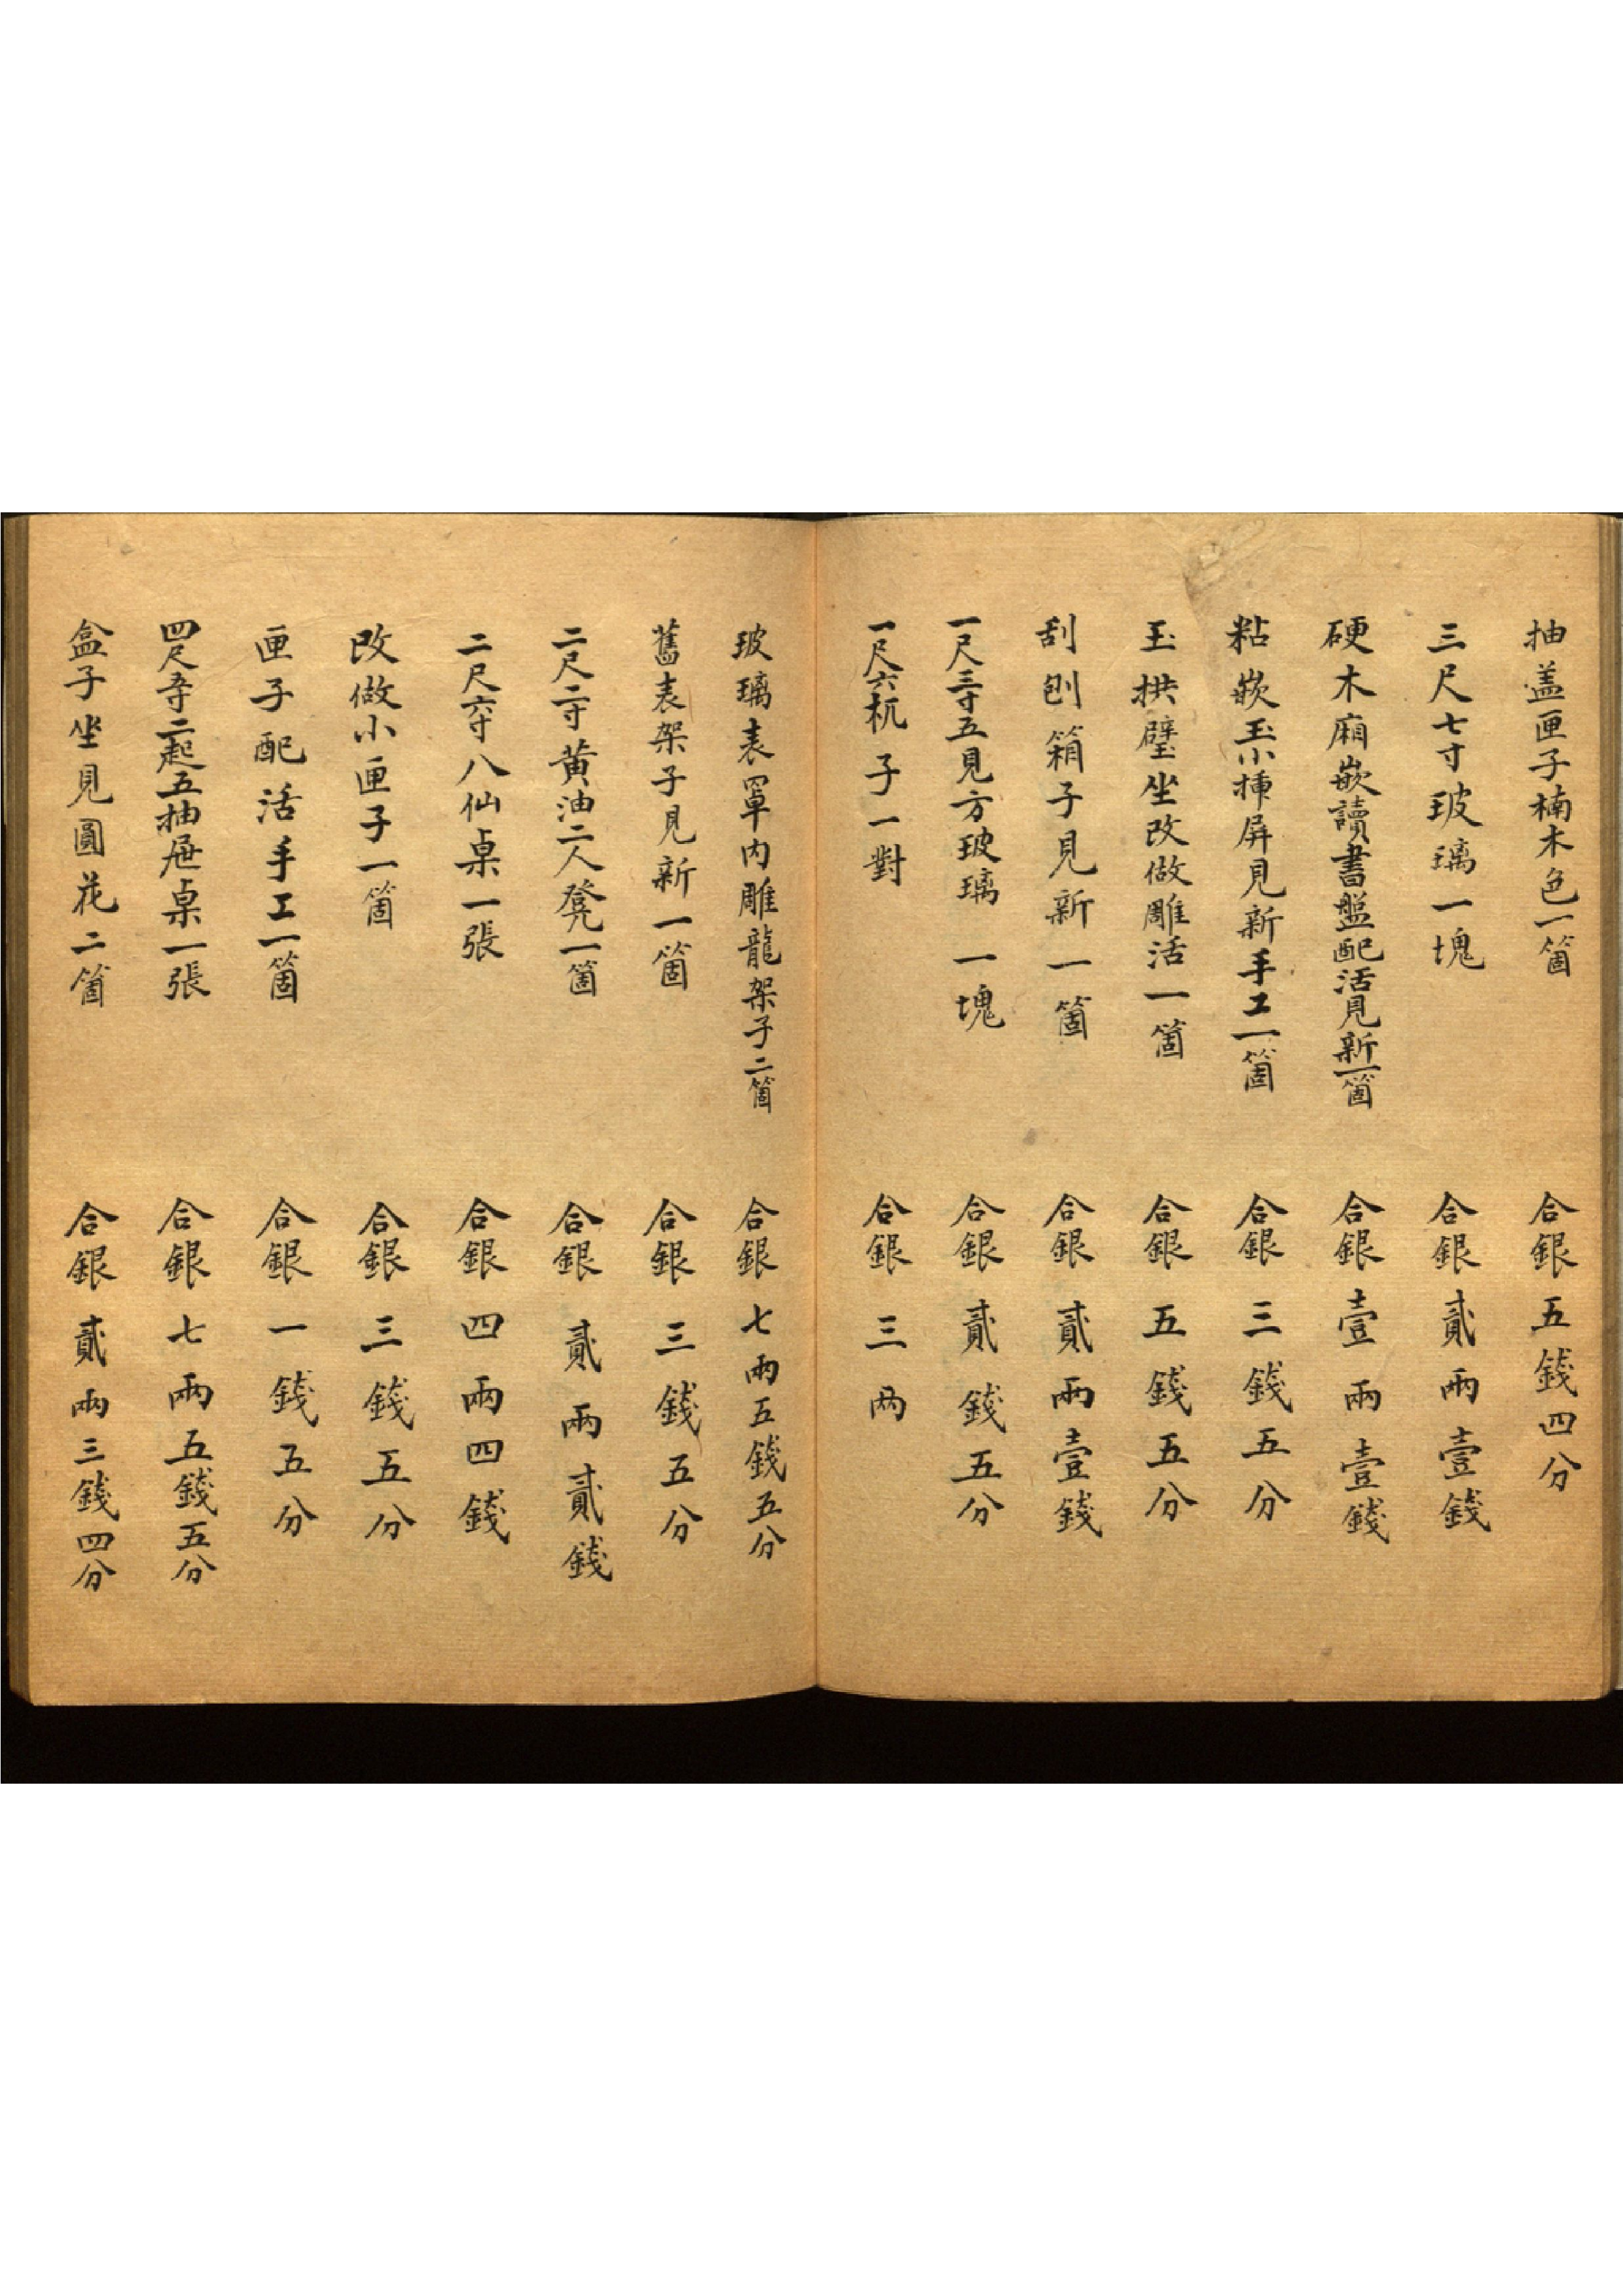 抽盖匣子楠木色一箇 合銀五錢四分
三尺七寸玻璃一塊 合銀貳兩壹錢
硬木廂嵌讀書盤配活見新一箇 合銀壹兩壹錢
粘嵌玉小揷屏見新手工一箇 合銀三錢五分
玉拱璧坐改做雕活一箇 合銀五錢五分
刮刨箱子見新一箇 合銀貳兩壹錢
一尺三寸五見方玻璃一塊 合銀貳錢五分
一尺六杌子一對 合銀三两
玻璃表罩内雕龍架子二箇 合銀七兩五錢五分
舊表架子見新一箇 合銀三錢五分
二尺二寸黄油二人凳一箇 合銀貳兩貳錢
二尺六寸八仙桌一張 合銀四兩四錢
改做小匣子一箇 合銀三錢五分
匣子配活手工一箇 合銀一錢五分
四尺二起五抽屉桌一張 合銀七兩五錢五分
盒子坐見圓花二箇 合銀貳兩三錢四分